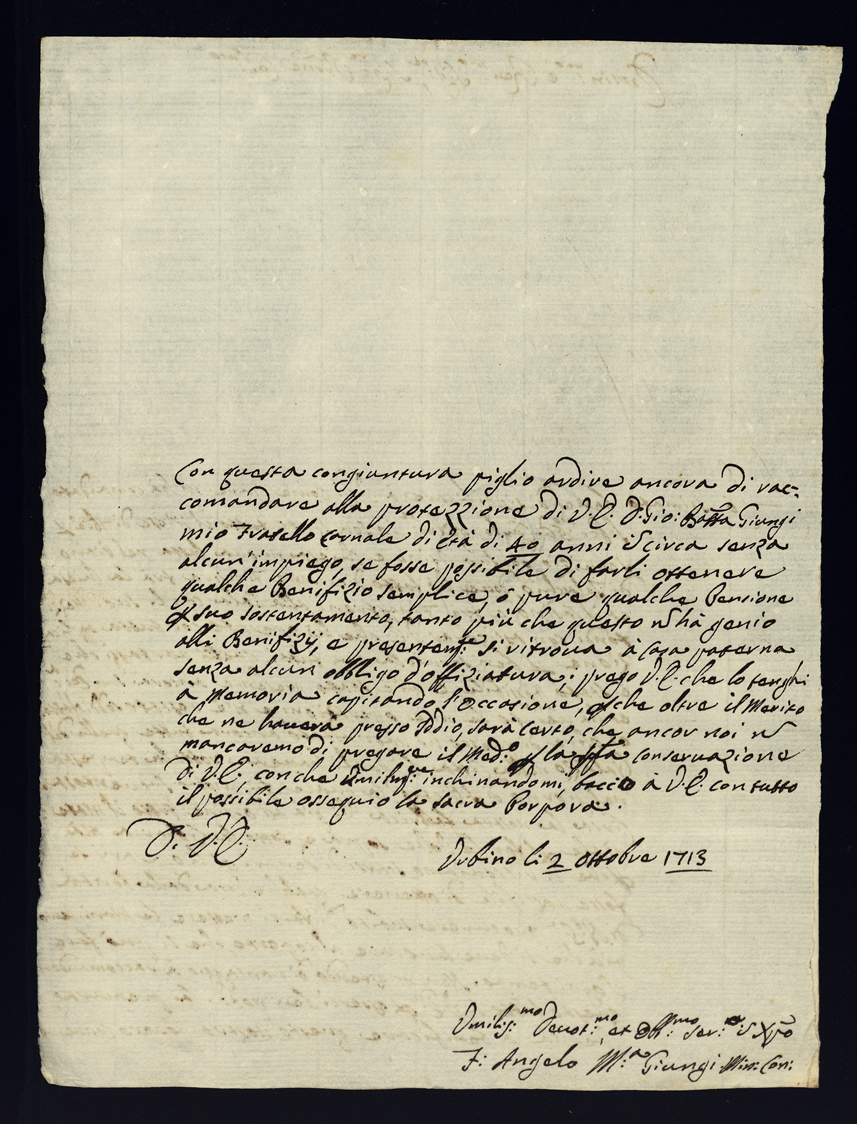 Con questa congiuntura piglio ardire ancora di rac=
comandare alla protezzione di V.E. D. Gio: Batta Giungi
mio Fratello carnale di età di 40 anni in circa senza
alcun'impiego, se fosse possibile di farli ottenere
qualche Benifizio semplice, ò pure qualche Pensione
p suo sostentamento, tanto più che questo nō hà genio
alli Benifizij, e presentem:te si ritroua à Casa paterna
senza alcun obbligo d'offiziatura; prego V.E. che lo tenghi
à Memoria capitando l'occasione, p che oltre il Merito
che ne hauerà presso Iddio, sarà certo, che ancor noi nō
mancaremo di pregare il Med:o p la conservazione
di V.E. con che Umilm:te inchinandomi, baccio à V.E. con tutto
il possibile ossequio la sacra Porpora.
D. V.E.
Urbino li 2 Ottobre 1713
Umiliss:mo Deuot:mo et Obb:mo ser:re in Xpō
F: Angelo M:a Giungi Min: Con: